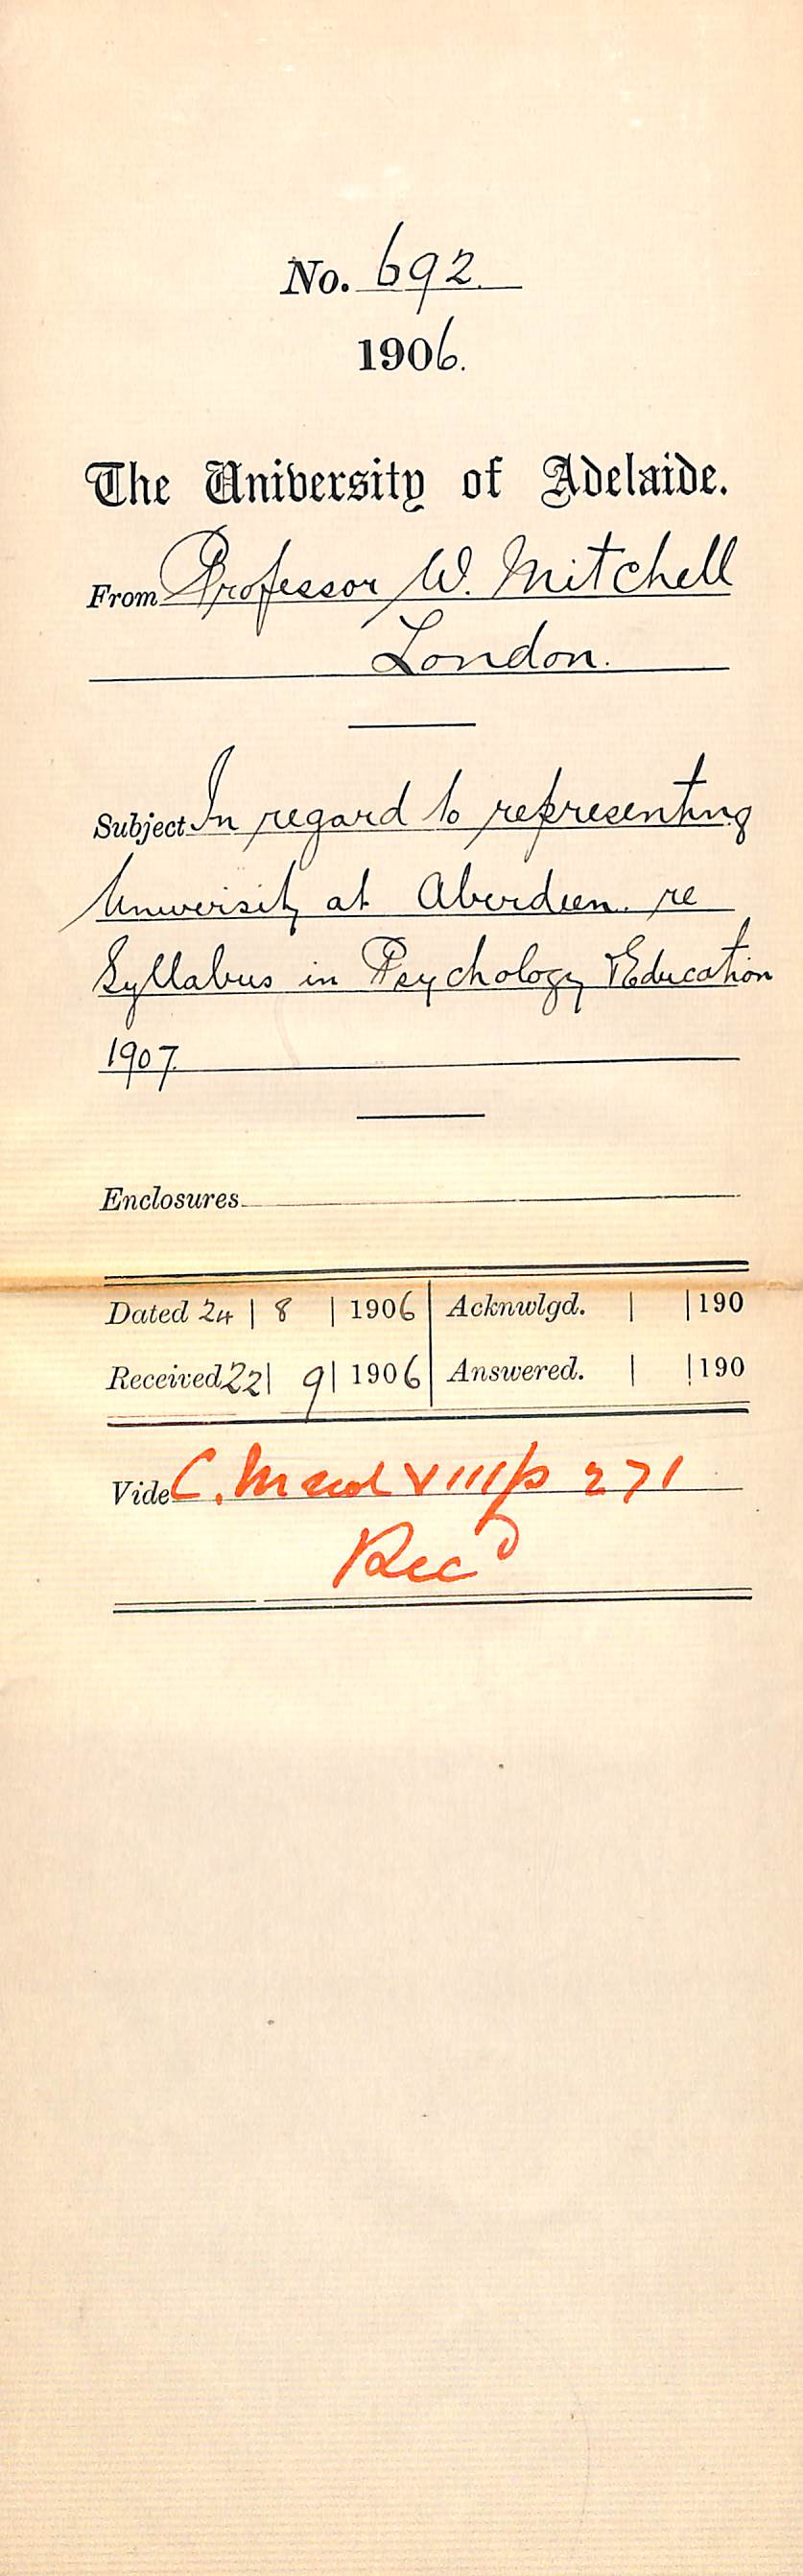 No. 692.
1906.
The University of Adelaide.
From Professor W. Mitchell
London.
Subject In regard to representing
University at Aberdeen. re
Syllabus in Psychology Education
1907
Enclosures
Dated 24 | 8 | 1906 Acknwlgd. | | 190
Received 22 | 9 | 1906 Answered. | | 190
Vide C. VIII/p 271
Recd